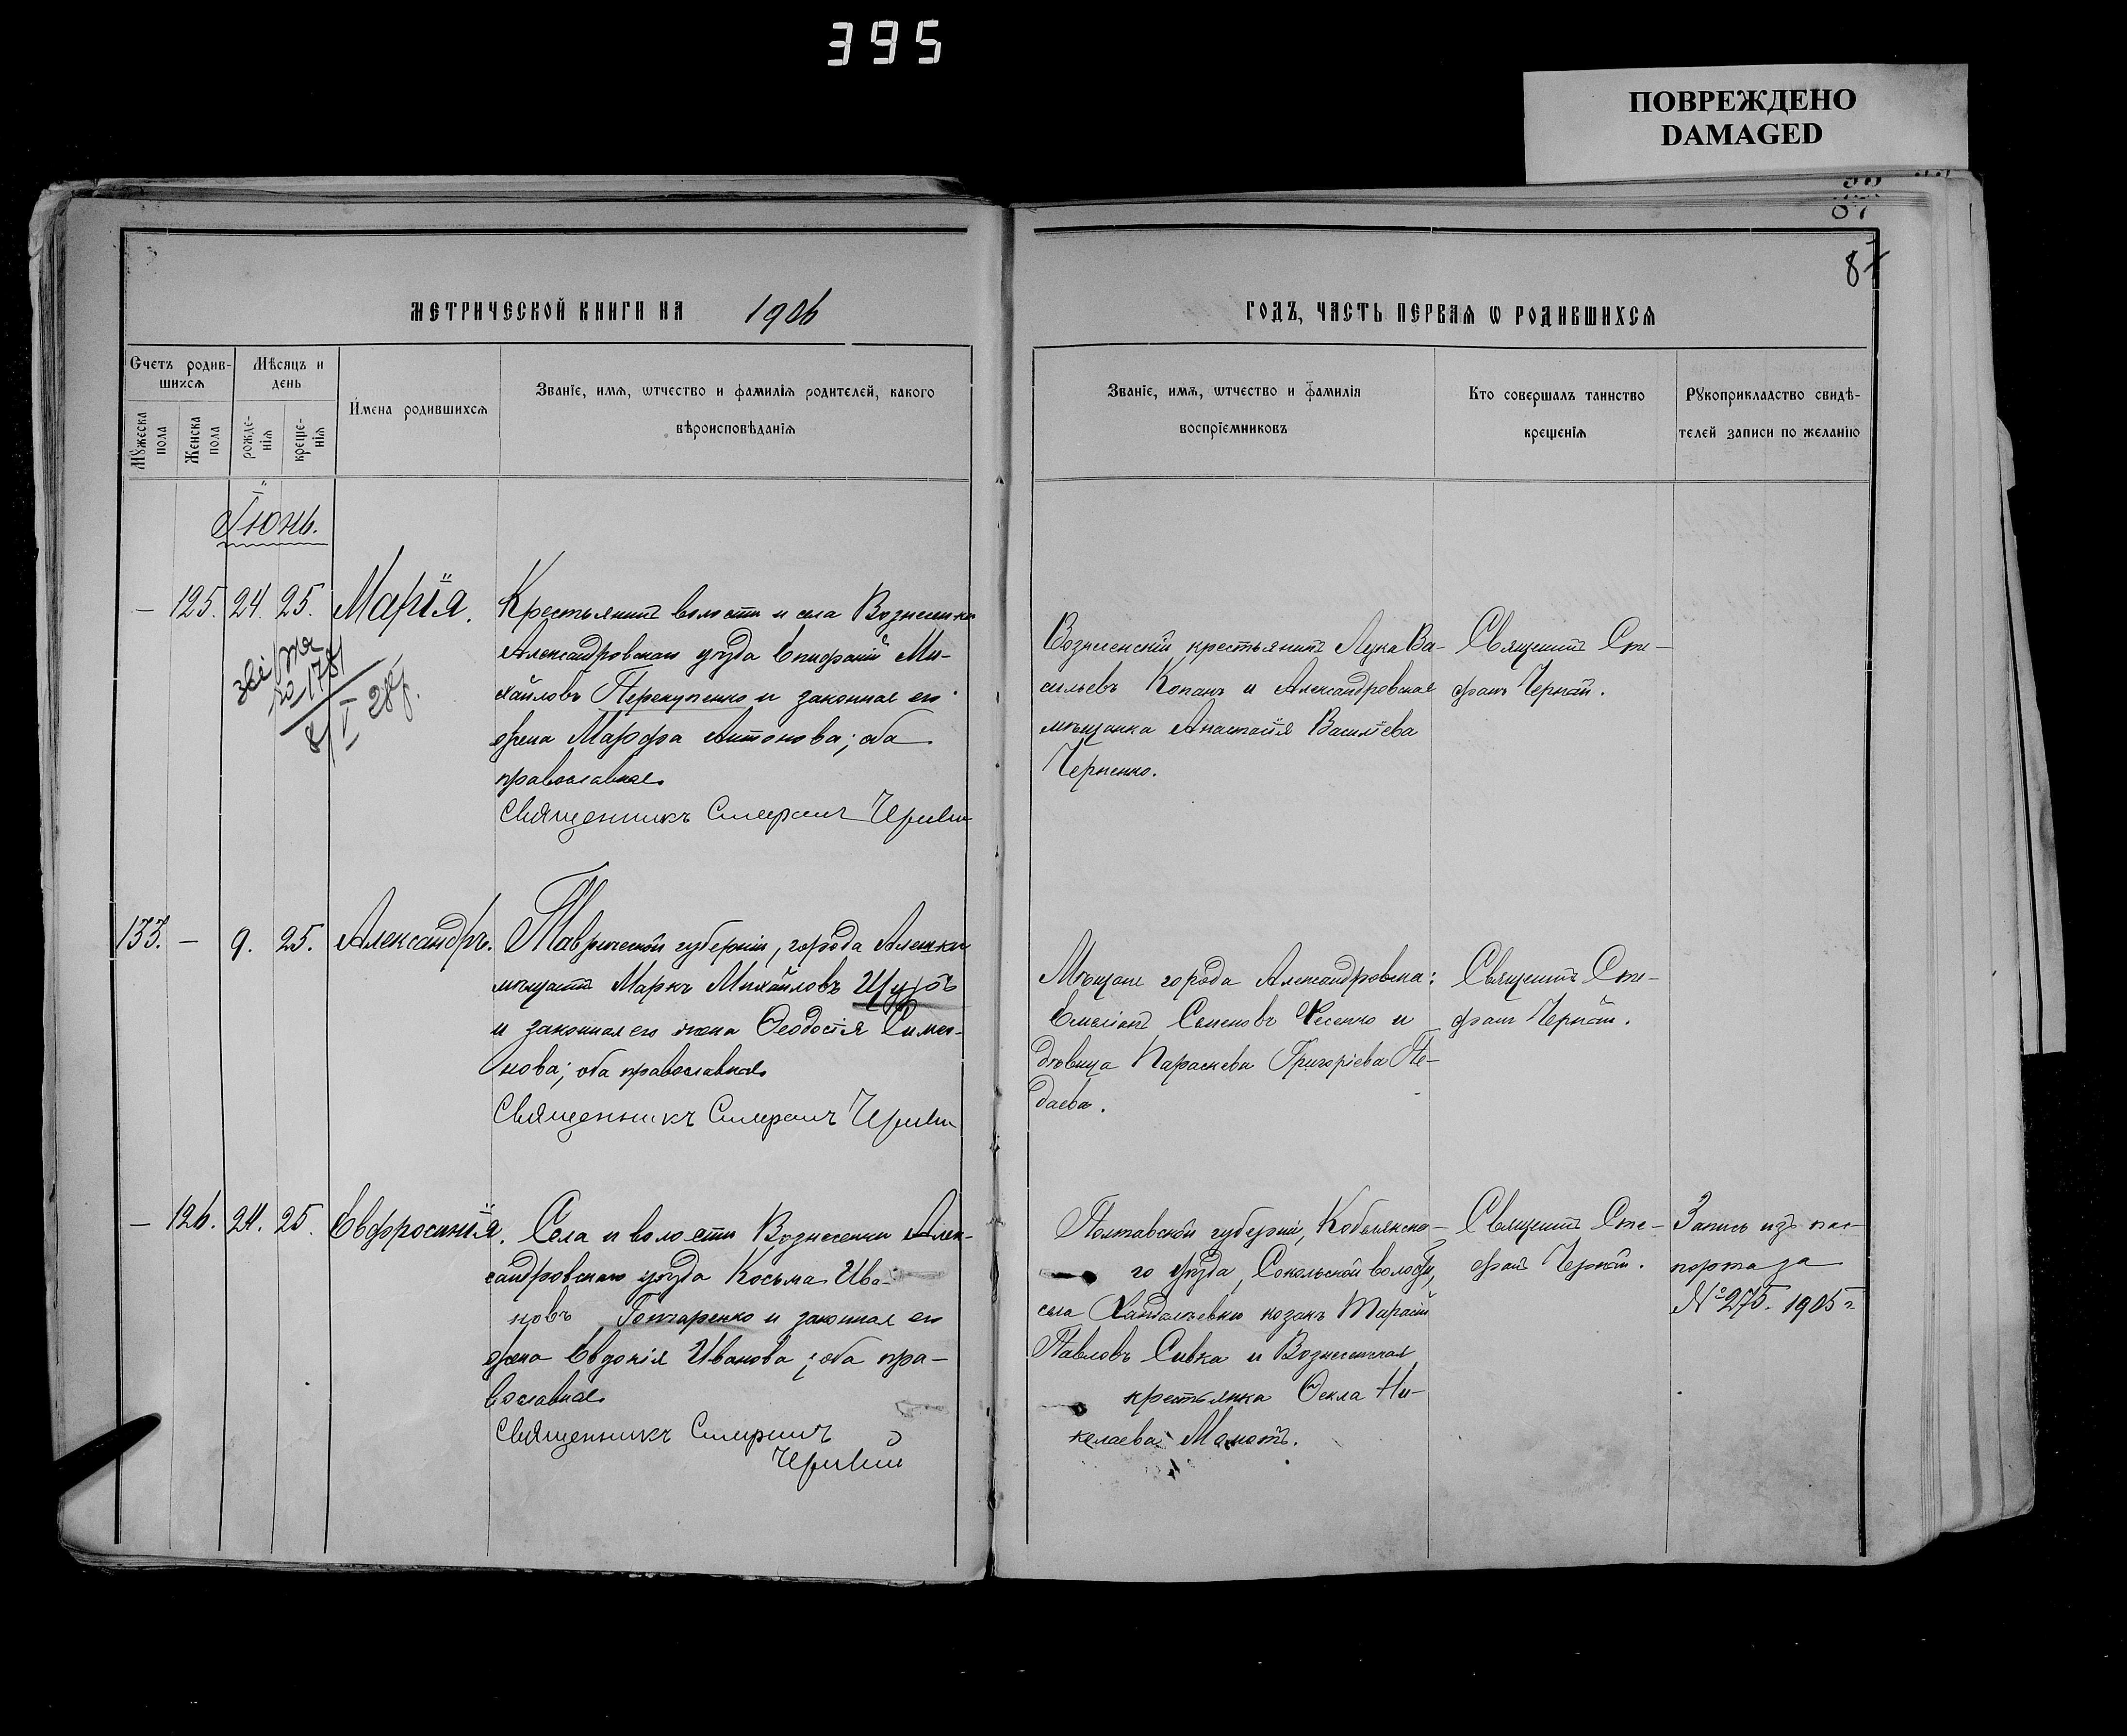 395
ПОВРЕЖДЕНО
DAMAGED
87
87
МЕТРИЧЕСКОЙ КНИГИ НА 1906
ГОДЪ, ЧАСТЬ ПЕРВАѦ Ѡ РОДИВШИХСѦ
Счетъ родив-
шихсѧ
Мѣсяцъ и
день
Мꙋжеска
пола
Женска
пола
рожде-
нїѧ
креще-
нїѧ
Имена родившихсѧ
Званїе, имѧ, ѡтчество и фамилїѧ родителей, какого
вѣроисповѣданїѧ
Званїе, имѧ, ѡтчество и фамилїѧ
воспрїемниковъ
Кто совершалъ таинство
крещенїѧ
Рꙋкоприкладство свидѣ-
телей записи по желанїю
Іюнь.
— 125. 24. 25. Марія.
Крестьянинъ волости и села Вознесенки
Александровскаго уѣзда Епифаній Ми-
хайловъ Перекупенко и законная его
жена Марфа Антонова; оба
православные
Священникъ Стефанъ Черный
178
8/I 28 р.
Вознесенскій крестьянинъ Лука Ва-
сильевъ Копанъ и Александровская
мѣщанка Анастасія Василіева
Черненко.
Священникъ Сте-
фанъ Черный.
133. — 9. 25. Александръ.
Таврической губерніи, города Алешки
мѣщанинъ Маркъ Михайловъ Щуръ
и законная его жена Ѳеодосія Симео-
нова; оба православные
Священникъ Стефанъ Черный
Мѣщане города Александровска:
Емельянъ Семеновъ Фесенко и
дѣвица Параскева Григоріева Не-
даева.
Священникъ Сте-
фанъ Черный.
— 126. 24. 25. Евфросинія.
Села и волости Вознесенки Алек-
сандровскаго уѣзда Косьма Ива-
новъ Гонтаренко и законная его
жена Евдокія Иванова; оба пра-
вославные
Священникъ Стефанъ
Черный
Полтавской губерніи, Кобелякска-
го уѣзда, Сокольской волости,
села козакъ Тарасій
Павловъ Сивка и Вознесенская
крестьянка Ѳекла Ни-
колаева Мамотъ.
Священникъ Сте-
фанъ Черный.
Запись изъ пас-
порта за
№ 275. 1905 г.